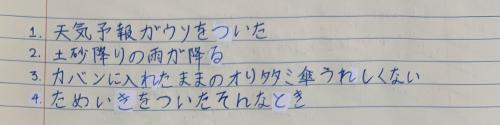 1. 天気予報がウソをついた
2. 土砂降りの雨が降る
3. カバンに入れたままのオリタタミ傘うれしくない
4. ためいきをついたそんなとき